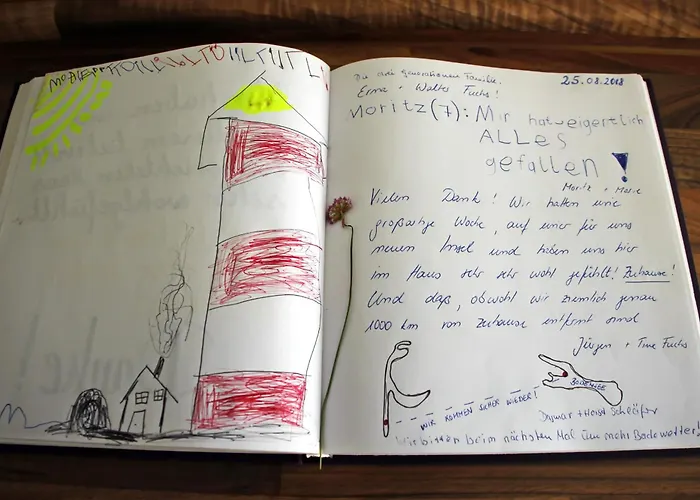 Die drei generationen Familie.
25.08.2018
Erma + Walter Fuchs!
Moritz(7): Mir hat eigentlich
ALLES
gefallen!
Moritz + Marie
Vielen Dank! Wir hatten eine
großartige Woche, auf einer für uns
neuen Insel und haben uns hier
im Haus sehr sehr wohl gefühlt. Zuhause!
Und daß, obwohl wir ziemlich genau
1000 km von zuhause entfernt sind
Jürgen + Tine Fuchs
BODENSEE
WIR KOMMEN SICHER WIEDER!
Dagmar + Horst Schläfer
Wir bitten beim nächsten Mal um mehr Badewetter!